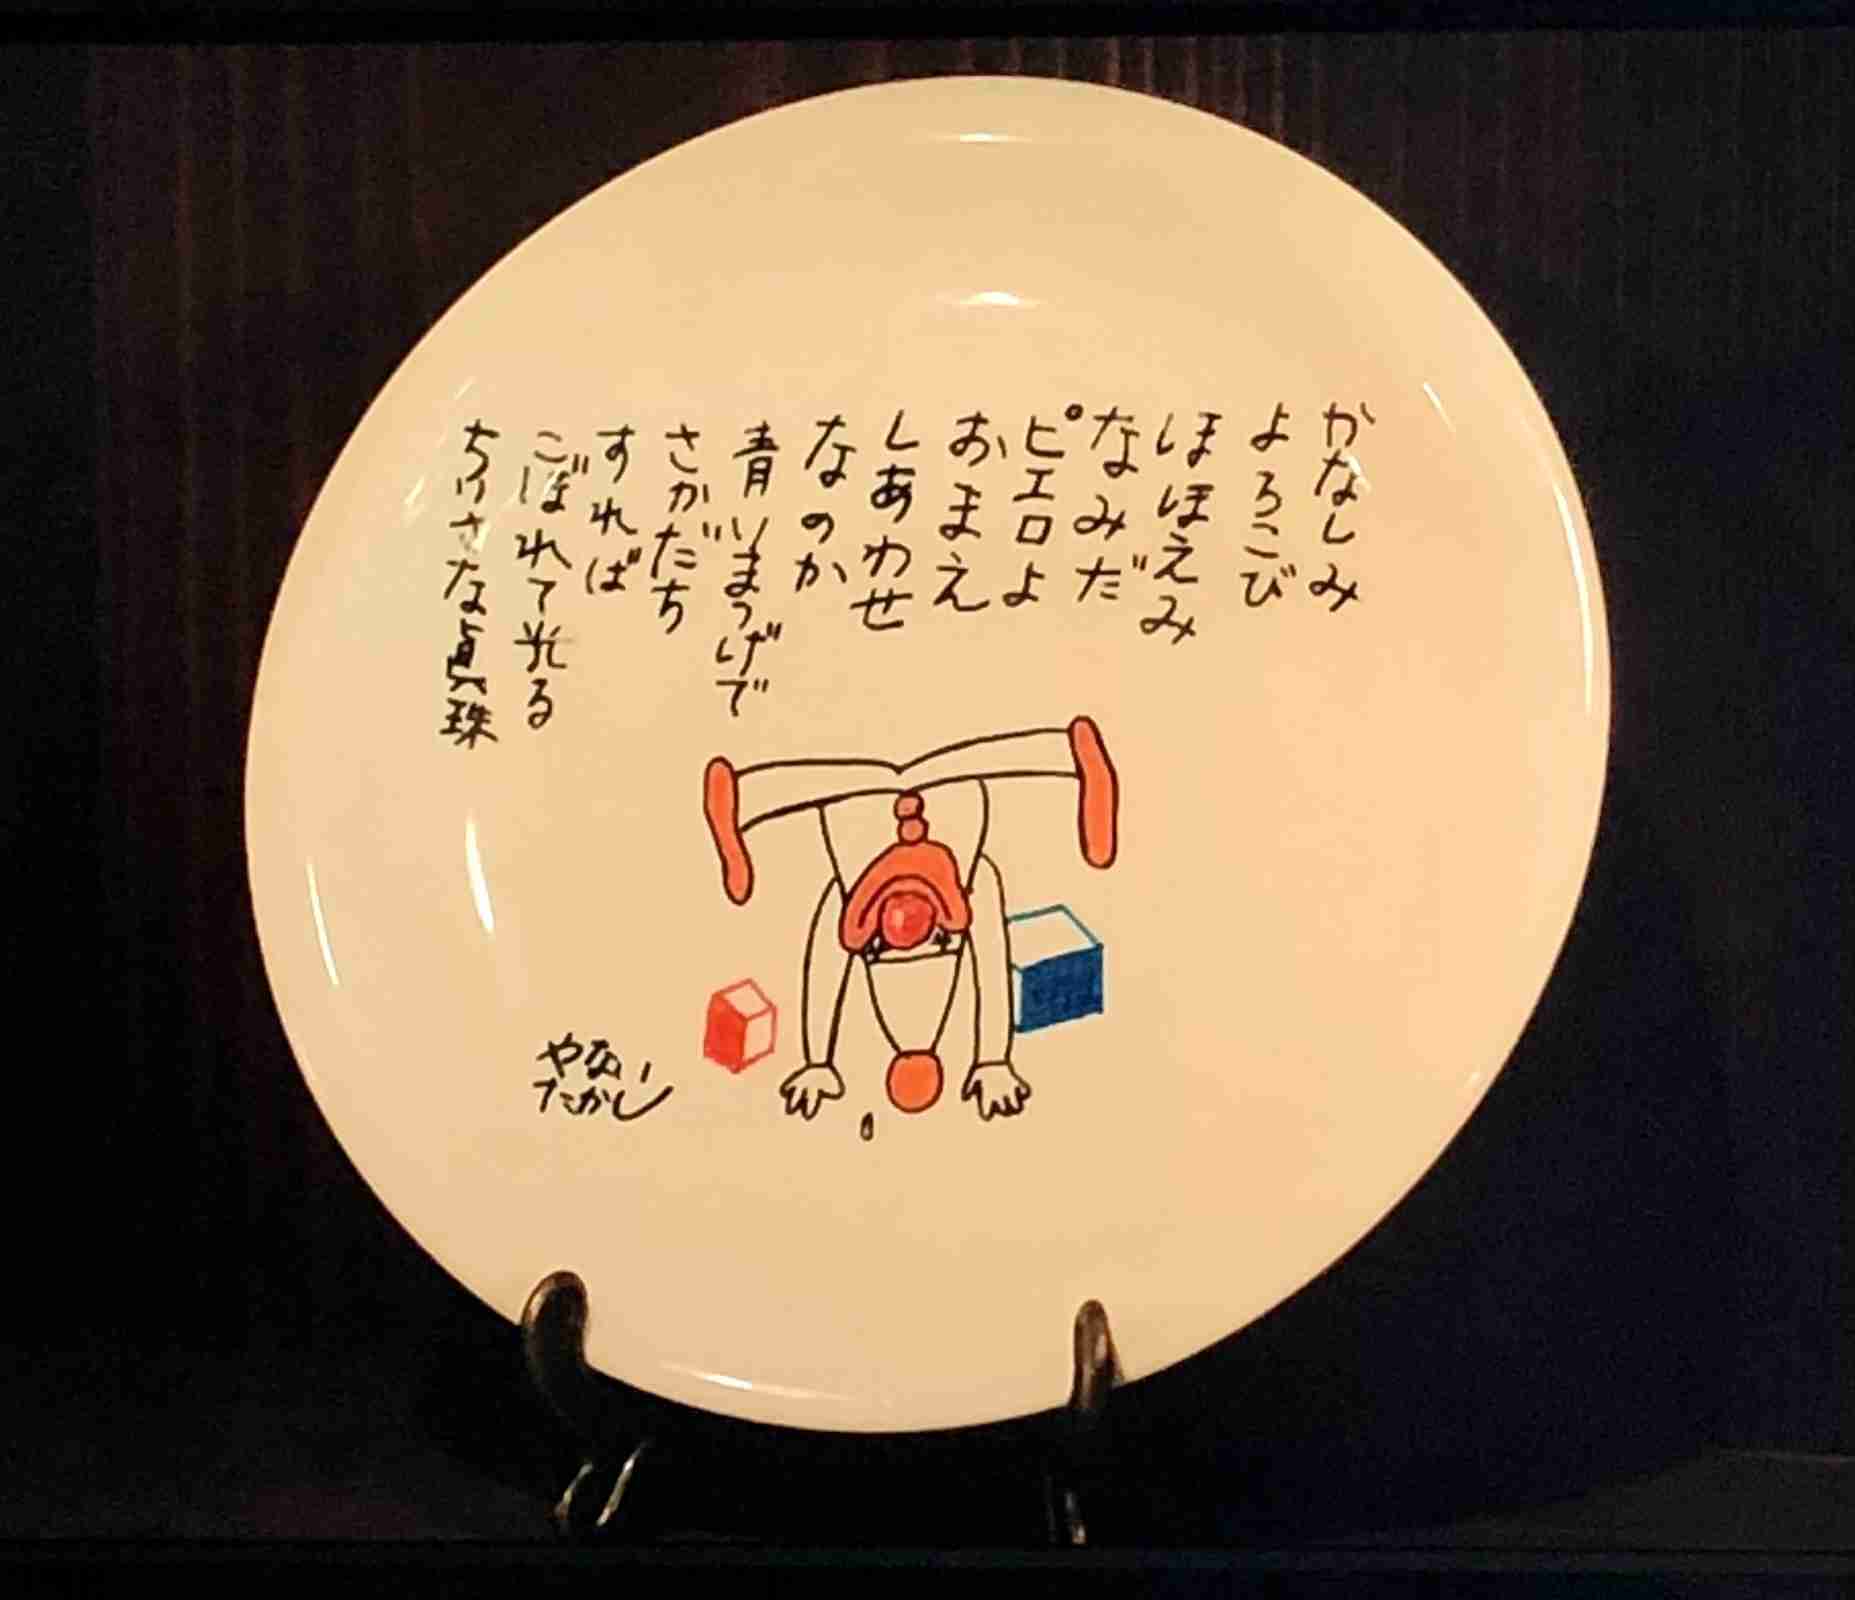 かなしみ
よろこび
ほほえみ
なみだ
ピエロよ
おまえ
しあわせ
なのか
青いまつげで
さかだち
すれば
こぼれて光る
ちいさな真珠
やない
たかし